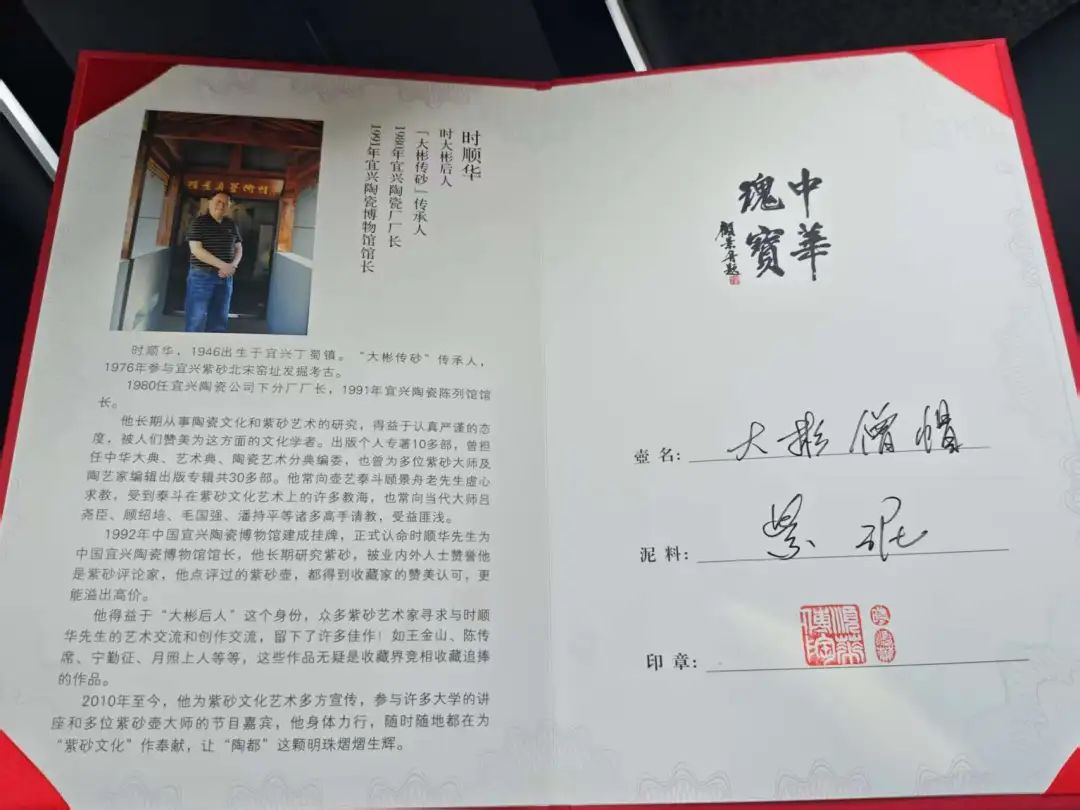 时顺华
时大彬后人
「大彬传砂」传承人
1980年宜兴陶瓷厂厂长
1991年宜兴陶瓷博物馆馆长
时顺华，1946出生于宜兴丁蜀镇。“大彬传砂”传承人，
1976年参与宜兴紫砂北宋窑址发掘考古。
1980任宜兴陶瓷公司下分厂厂长，1991年宜兴陶瓷陈列馆馆
长。
他长期从事陶瓷文化和紫砂艺术的研究，得益于认真严谨的态
度，被人们赞美为这方面的文化学者。出版个人专著10多部，曾担
任中华大典、艺术典、陶瓷艺术分典编委，也曾为多位紫砂大师及
陶艺家编辑出版专辑共30多部。他常向壶艺泰斗顾景舟老先生虚心
求教，受到泰斗在紫砂文化艺术上的许多教海，也常向当代大师吕
尧臣、顾绍培、毛国强、潘持平等诸多高手请教，受益匪浅。
1992年中国宜兴陶瓷博物馆建成挂牌，正式认命时顺华先生为
中国宜兴陶瓷博物馆馆长，他长期研究紫砂，被业内外人士赞誉他
是紫砂评论家，他点评过的紫砂壶，都得到收藏家的赞美认可，更
能溢出高价。
他得益于“大彬后人”这个身份，众多紫砂艺术家寻求与时顺
华先生的艺术交流和创作交流，留下了许多佳作！如王金山、陈传
席、宁勤征、月照上人等等，这些作品无疑是收藏界竞相收藏追捧
的作品。
2010年至今，他为紫砂文化艺术多方宣传，参与许多大学的讲
座和多位紫砂壶大师的节目嘉宾，他身体力行，随时随地都在为
“紫砂文化”作奉献，让“陶都”这颗明珠熠熠生辉。
中華
瑰寶
顧景舟題
壶名：大彬僧帽
泥料：紫泥
印章：